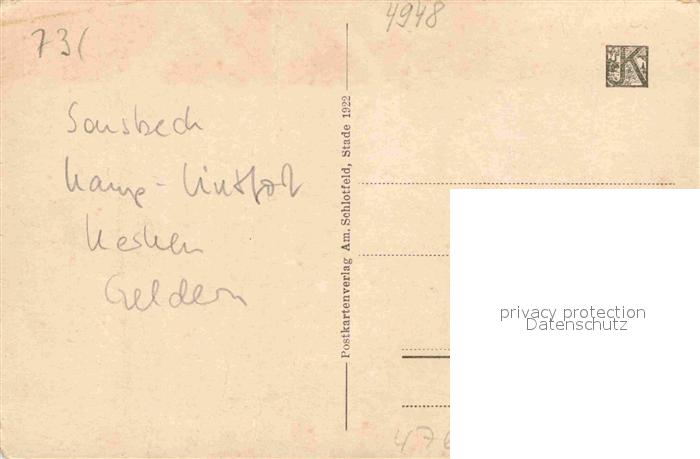 4948
73(
Sonsbeck
Kamp-Lintfort
Geldern
Postkartenverlag Am. Schlotfeld, Stade 1922
K
privacy protection
Datenschutz
476